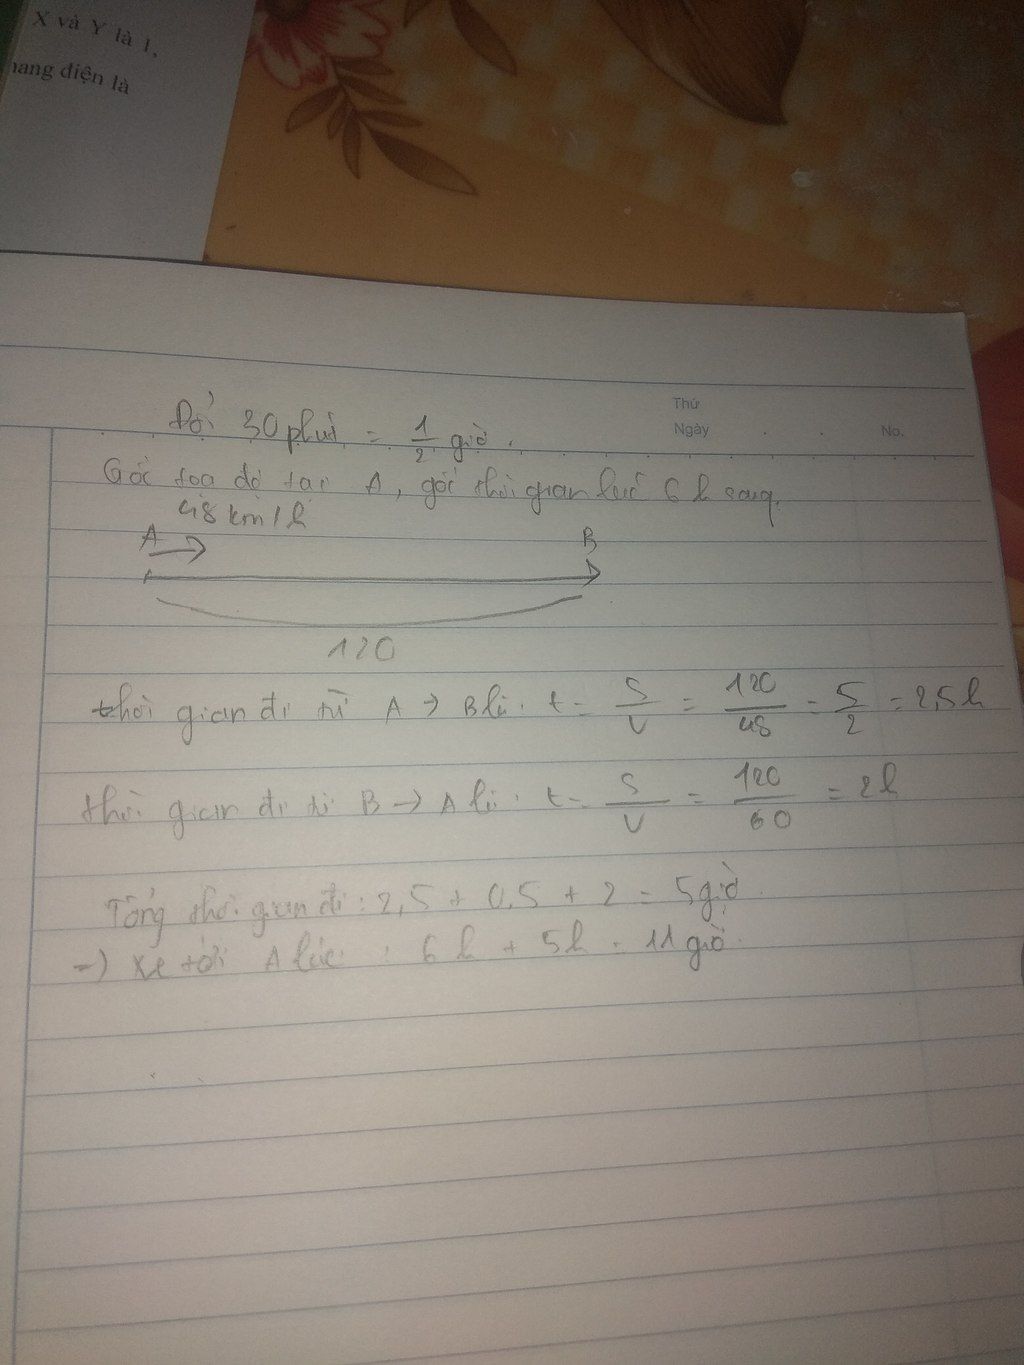 X và Y là 1,
nang điện là
Thứ
Ngày
No.
Đổi 30 phút = 1/2 giờ.
Gốc tọa độ tại A, gốc thời gian lúc 6 h sáng.
48 km/h
A B
120
thời gian đi từ A → B là: t = S/V = 120/48 = 5/2 = 2,5h
thời gian đi từ B → A là: t = S/V = 120/60 = 2h
Tổng thời gian đi: 2,5 + 0,5 + 2 = 5 giờ.
=) Xe tới A lúc: 6 h + 5h = 11 giờ.